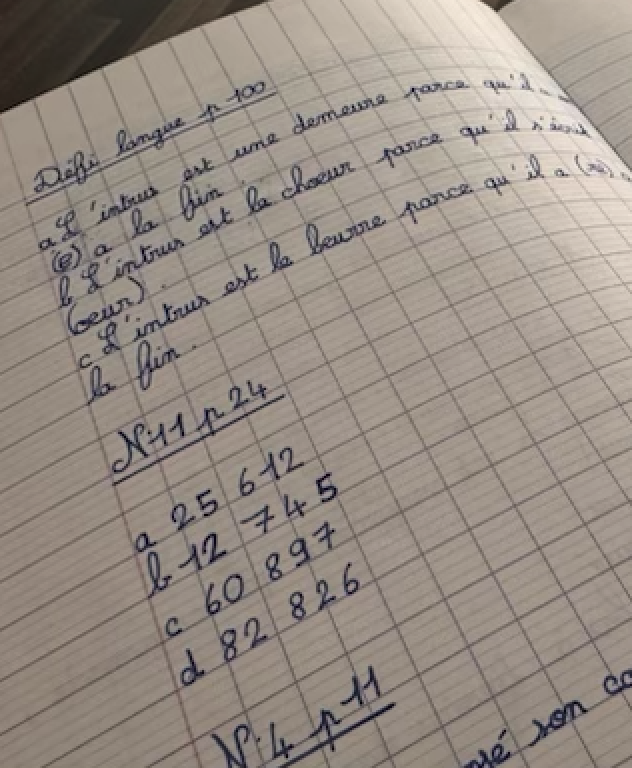 Défi langue p 100
a L'intrus est une demeure parce qu'il
(e) a la fin.
b L'intrus est la chœur parce qu'il s'écrit
(œur).
c L'intrus est le beurre parce qu'il a (re) a
la fin.
N°11 p 24
a 25 612
b 12 745
c 60 897
d 82 826
N°4 p 11
son